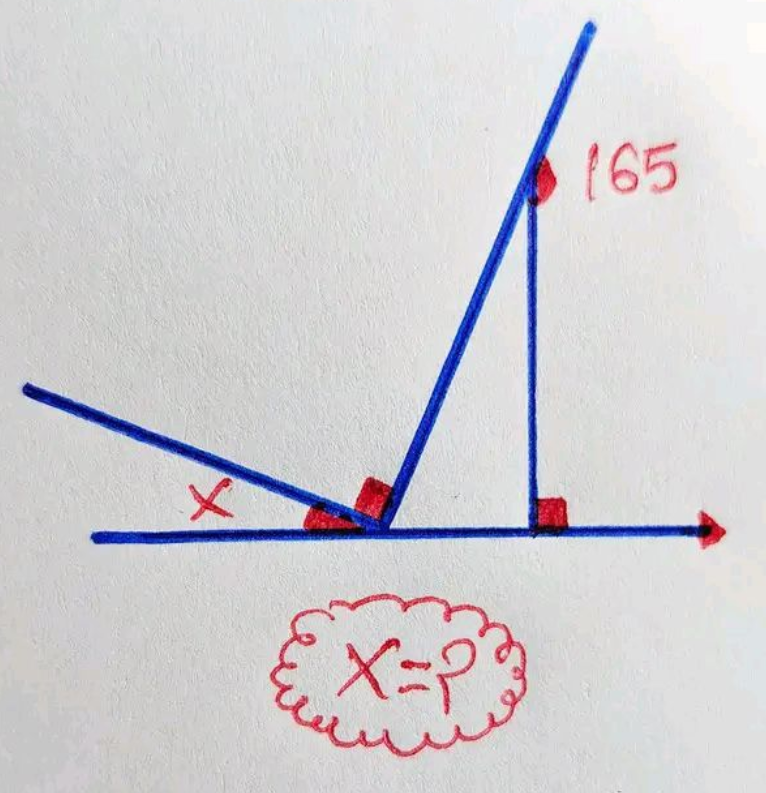 165
X
X=?